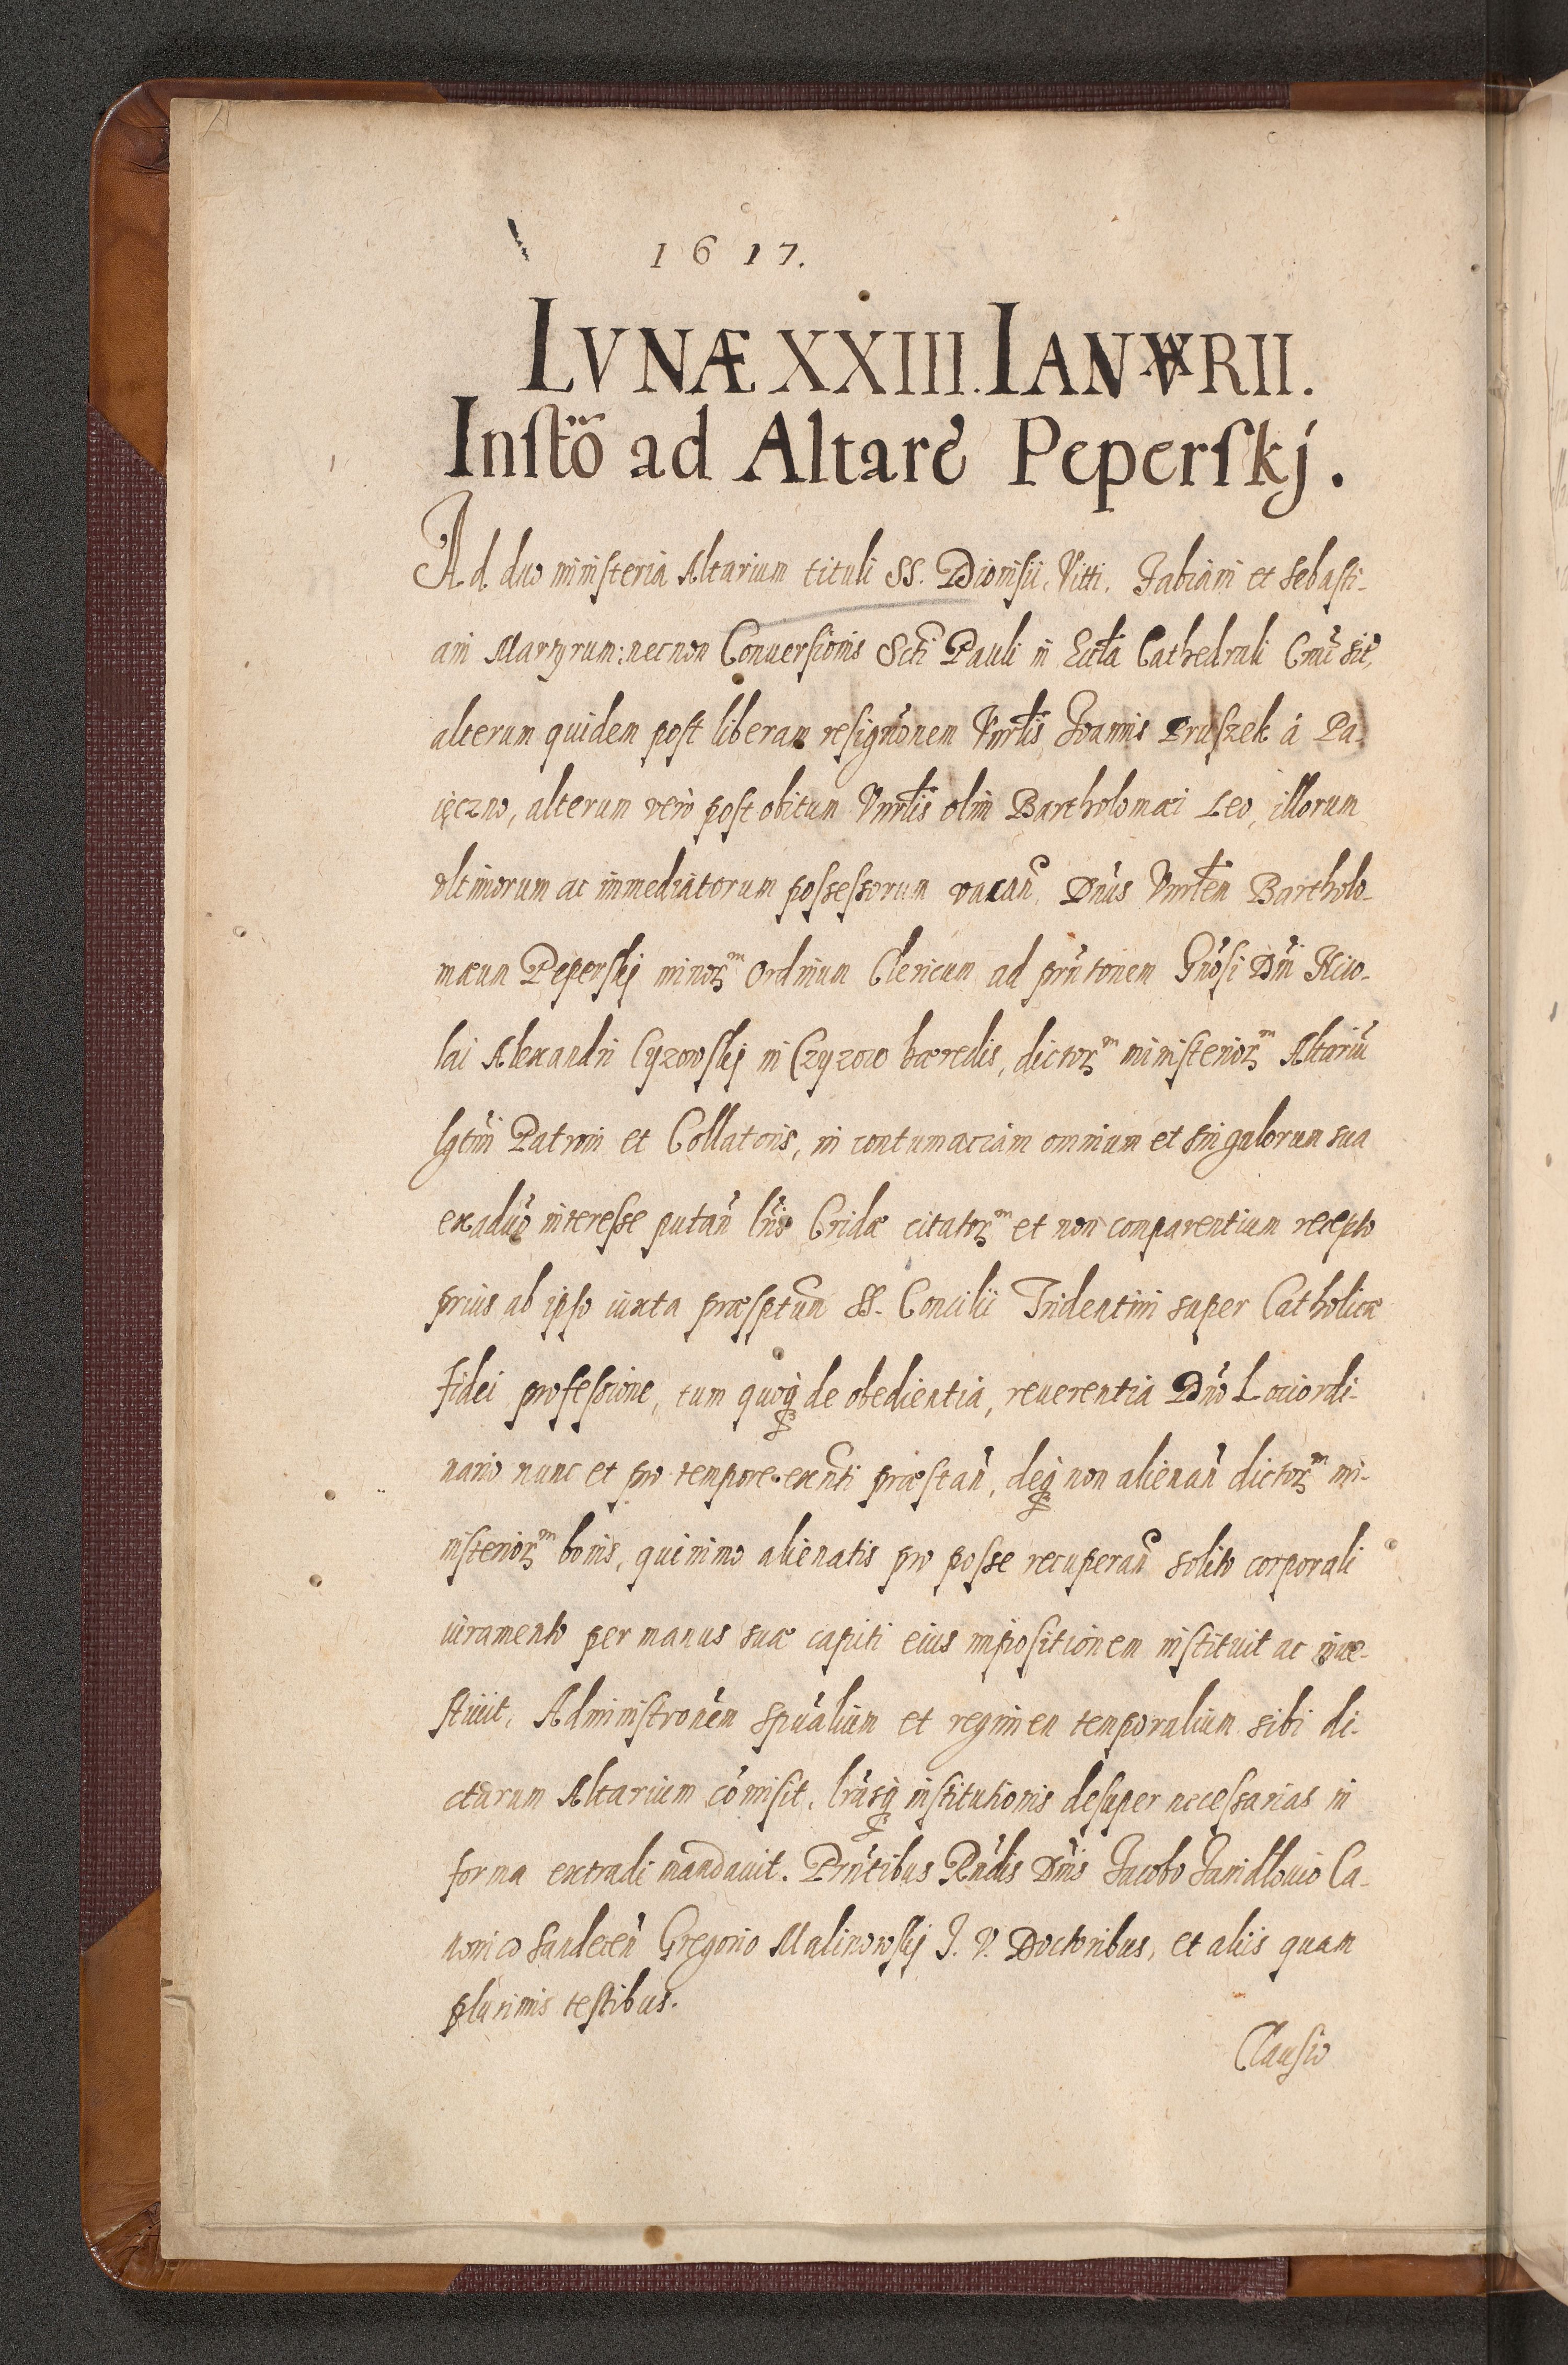 1617.
LVNÆ XXIII. IANVARII.
Instõ ad Altare Peperskj.
Ad duo ministeria Altarium tituli SS. Dionisii, Vitti, Fabiani et Sebasti-
ani Martyrum: necnon Conuersionis Scti Pauli in Eccla Cathedrali Crac̃ sit̃,
alterum quidem post liberam resignõnem Vnrlis Joannis Pruszek á Pa-
ięczno, alterum verò post obitum Vnrlis olim Bartholomæi Leo, illorum
vltimorum ac immediatorum possessorum vacañ, Dñus Vnrlem Bartholo-
mæum Peperskj minorꝝ Ordinum Clericum ad prñtõnem Gnõsi Dñi Nico-
lai Alexandri Cyzowskj in Czyzow hæredis, dictorꝝ ministeriorꝝ Altariũ
lgtm̃i Patroni et Collatoris, in contumaciam omnium et singulorum sua
ex aduõ interesse putañ lris̃ Cridæ citatorꝝ et non comparentium recepto
prius ab ipso iuxta præsptum SS. Concilii Tridentini super Catholicæ
fidei professione, tum quoqꝫ de obedientia, reuerentia Dño Lociordi-
nario nunc et pro tempore exñti præstañ, deqꝫ non alienañ dictorꝝ mi-
nisteriorꝝ bonis, quinimo alienatis pro posse recuperañ solito corporali
iuramento per manus suæ capiti eius impositionem instituit ac inue-
stiuit, Administrõnem spũalium et regimen temporalium sibi di-
ctorum Altarium cõmisit, lrãsqꝫ institutionis desuper necessarias in
forma extradi mandauit. Prñtibus Rñdis Dñis Jacobo Janidlouio Ca-
nonico Sandecen̄ Gregorio Malinowskj J. V. Doctoribus, et aliis quam
plurimis testibus.
Clausio